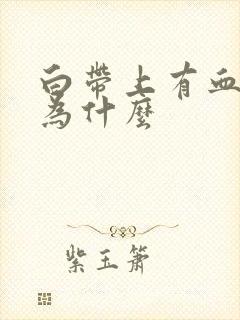 白帶上有血
為什麼
紫玉簫